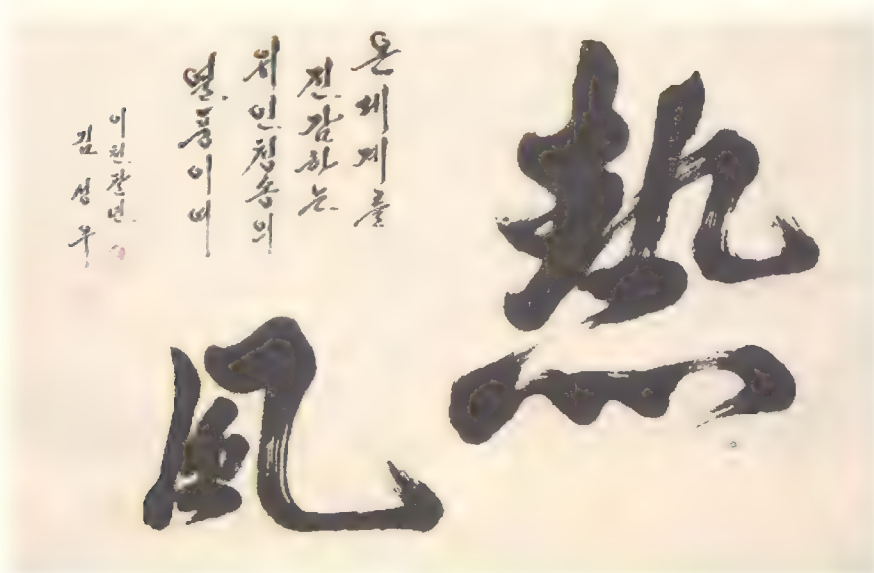 熱
風
온세계를
진감하는
위인칭송의
열풍이여
이천팔년
김성우